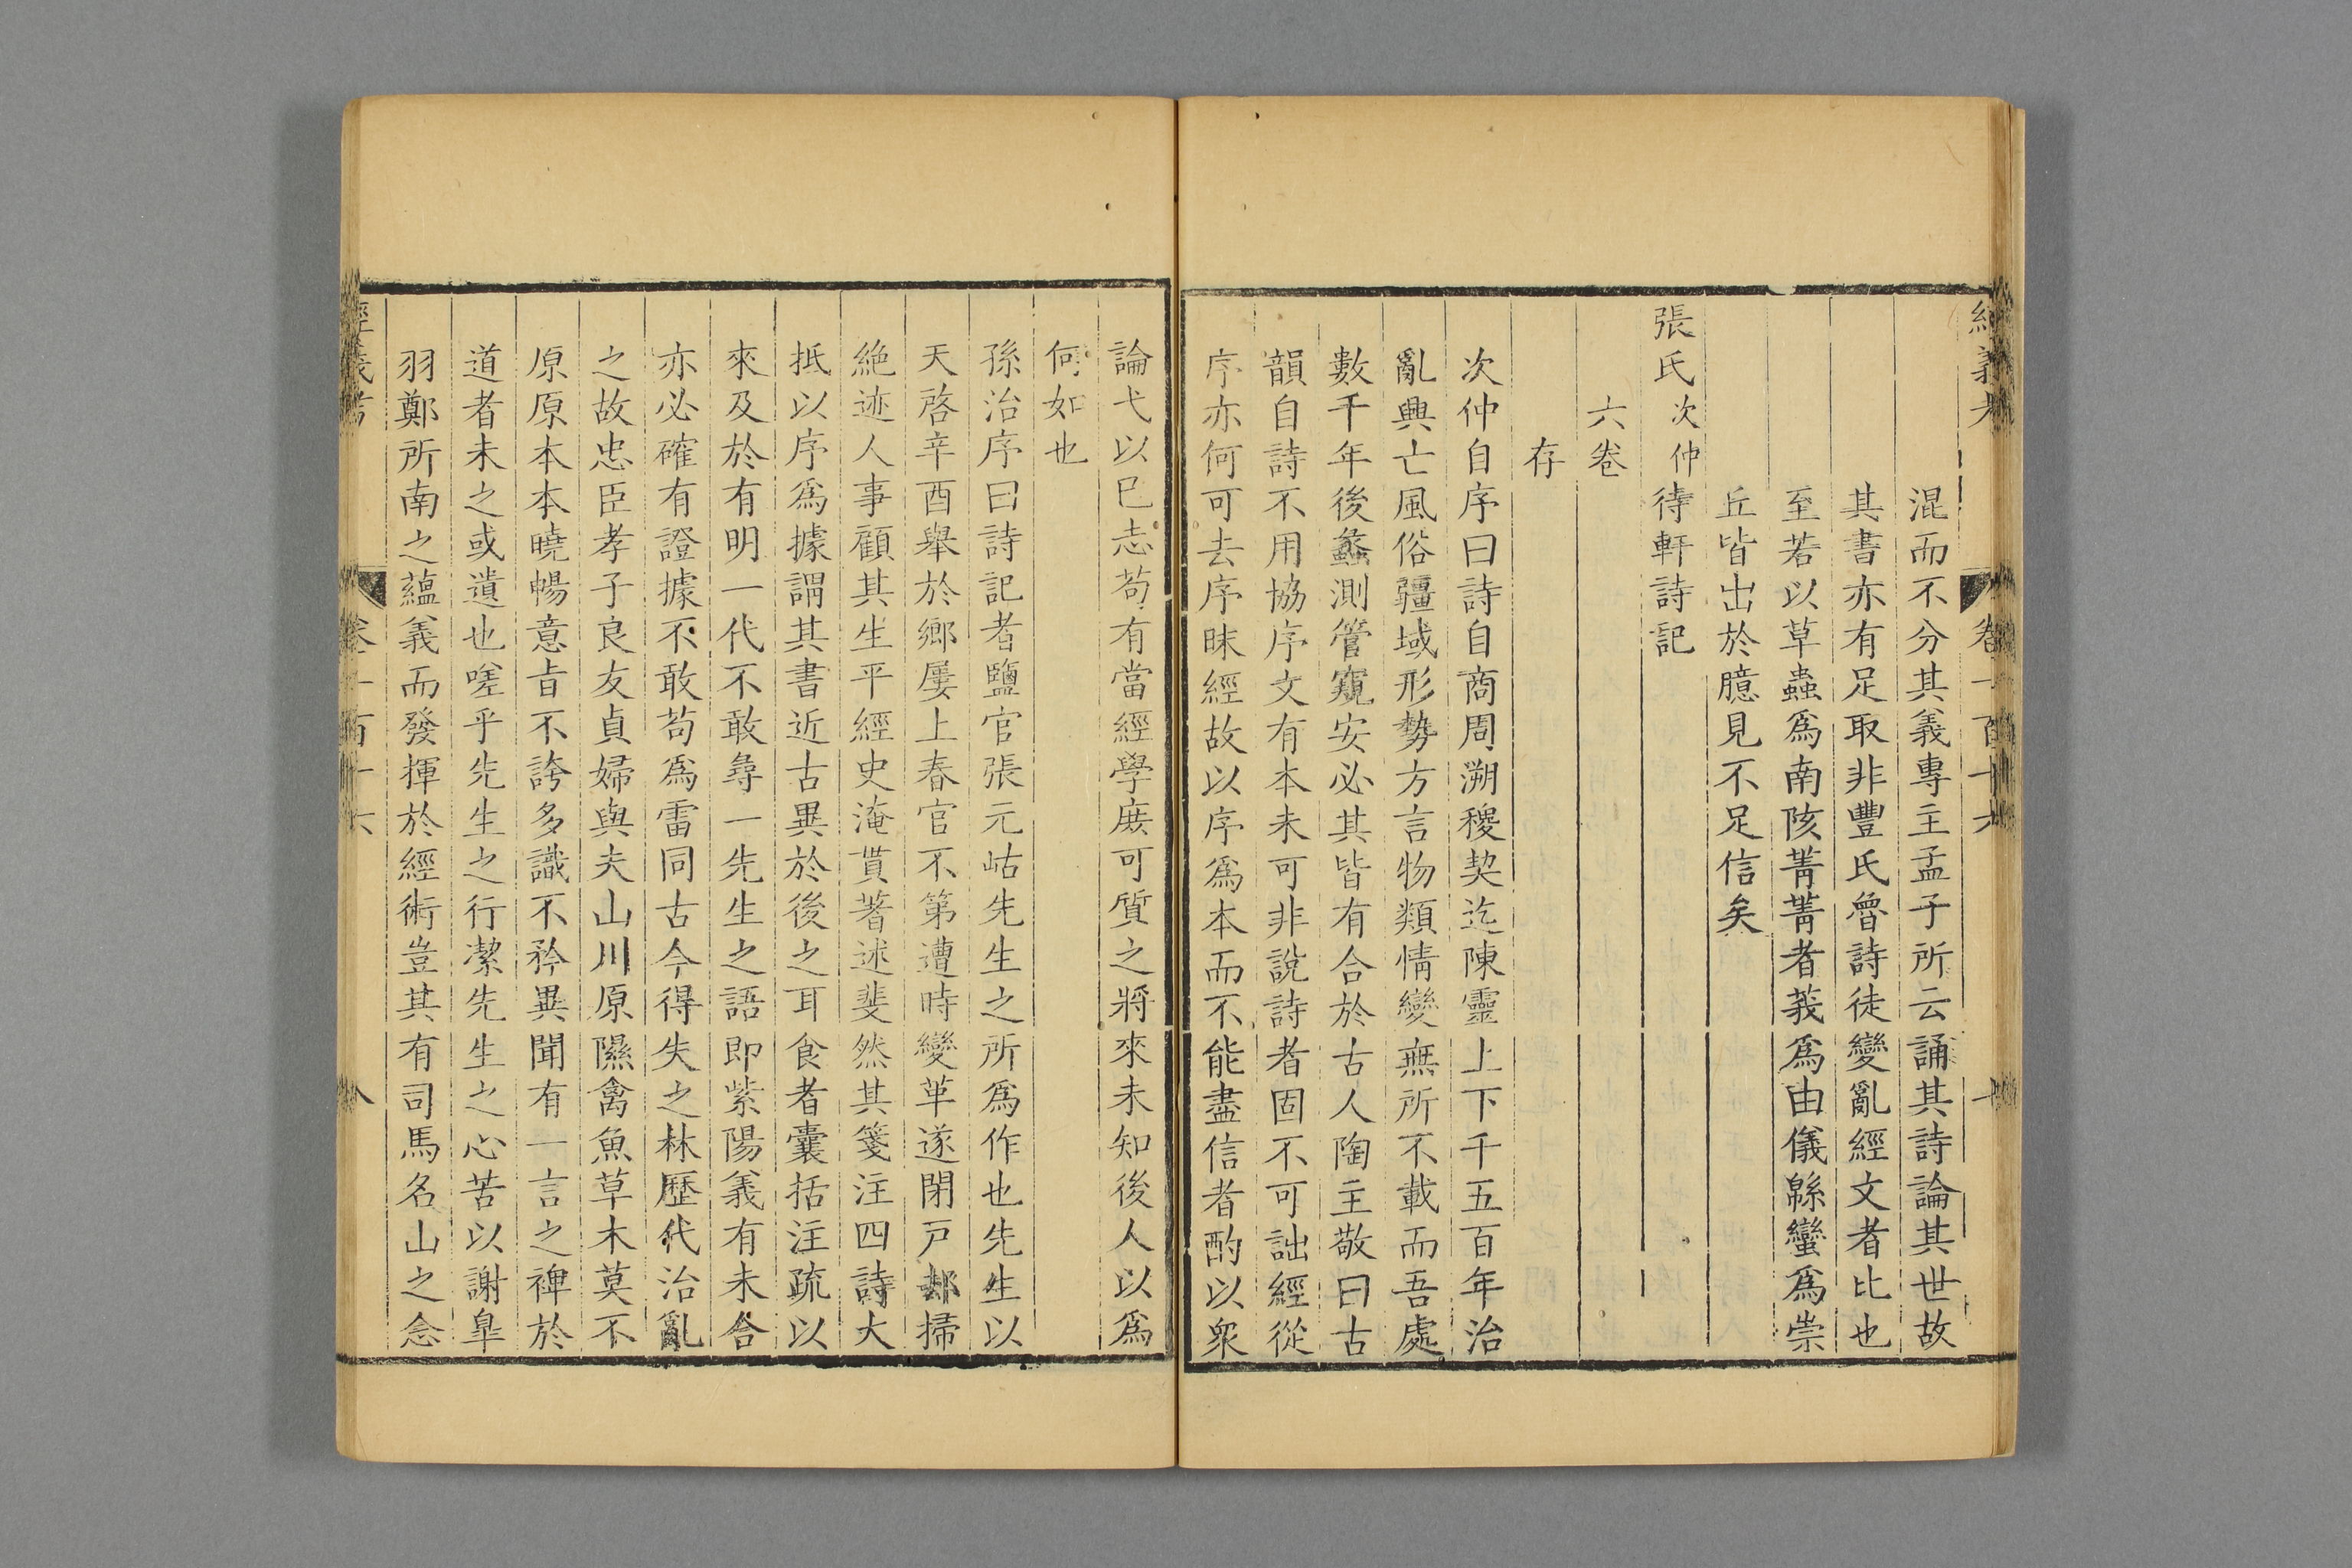 混而不分其義專主孟子所云誦其詩論其世故
其書亦有足取非豐氏魯詩徒變亂經文者比也
至若以草蟲爲南陔菁菁者莪爲由儀緜蠻爲崇
丘皆出於臆見不足信矣
張氏次仲待軒詩記
六卷
存
次仲自序曰詩自商周溯稷契迄陳靈上下千五百年治
亂興亡風俗疆域形勢方言物類情變無所不載而吾處
數千年後蠡測管窺安必其皆有合於古人陶主敬曰古
韻自詩不用協序文有本未可非說詩者固不可詘經從
序亦何可去序昧經故以序爲本而不能盡信者酌以衆
論弋以巳志苟有當經學庶可質之將來未知後人以爲
何如也
孫治序曰詩記者鹽官張元岵先生之所爲作也先生以
天啓辛酉舉於鄉屢上春官不第遭時變革遂閉戸却掃
絶迹人事顧其生平經史淹貫著述斐然其箋注四詩大
抵以序爲據謂其書近古異於後之耳食者囊括注疏以
來及於有明一代不敢尋一先生之語即紫陽義有未合
亦必確有證據不敢苟爲雷同古今得失之林歷代治亂
之故忠臣孝子良友貞婦與夫山川原隰禽魚草木莫不
原原本本曉暢意旨不誇多識不矜異聞有一言之裨於
道者未之或遺也嗟乎先生之行潔先生之心苦以謝臯
羽鄭所南之蘊義而發揮於經術豈其有司馬名山之念
經義考
卷一百十六
八